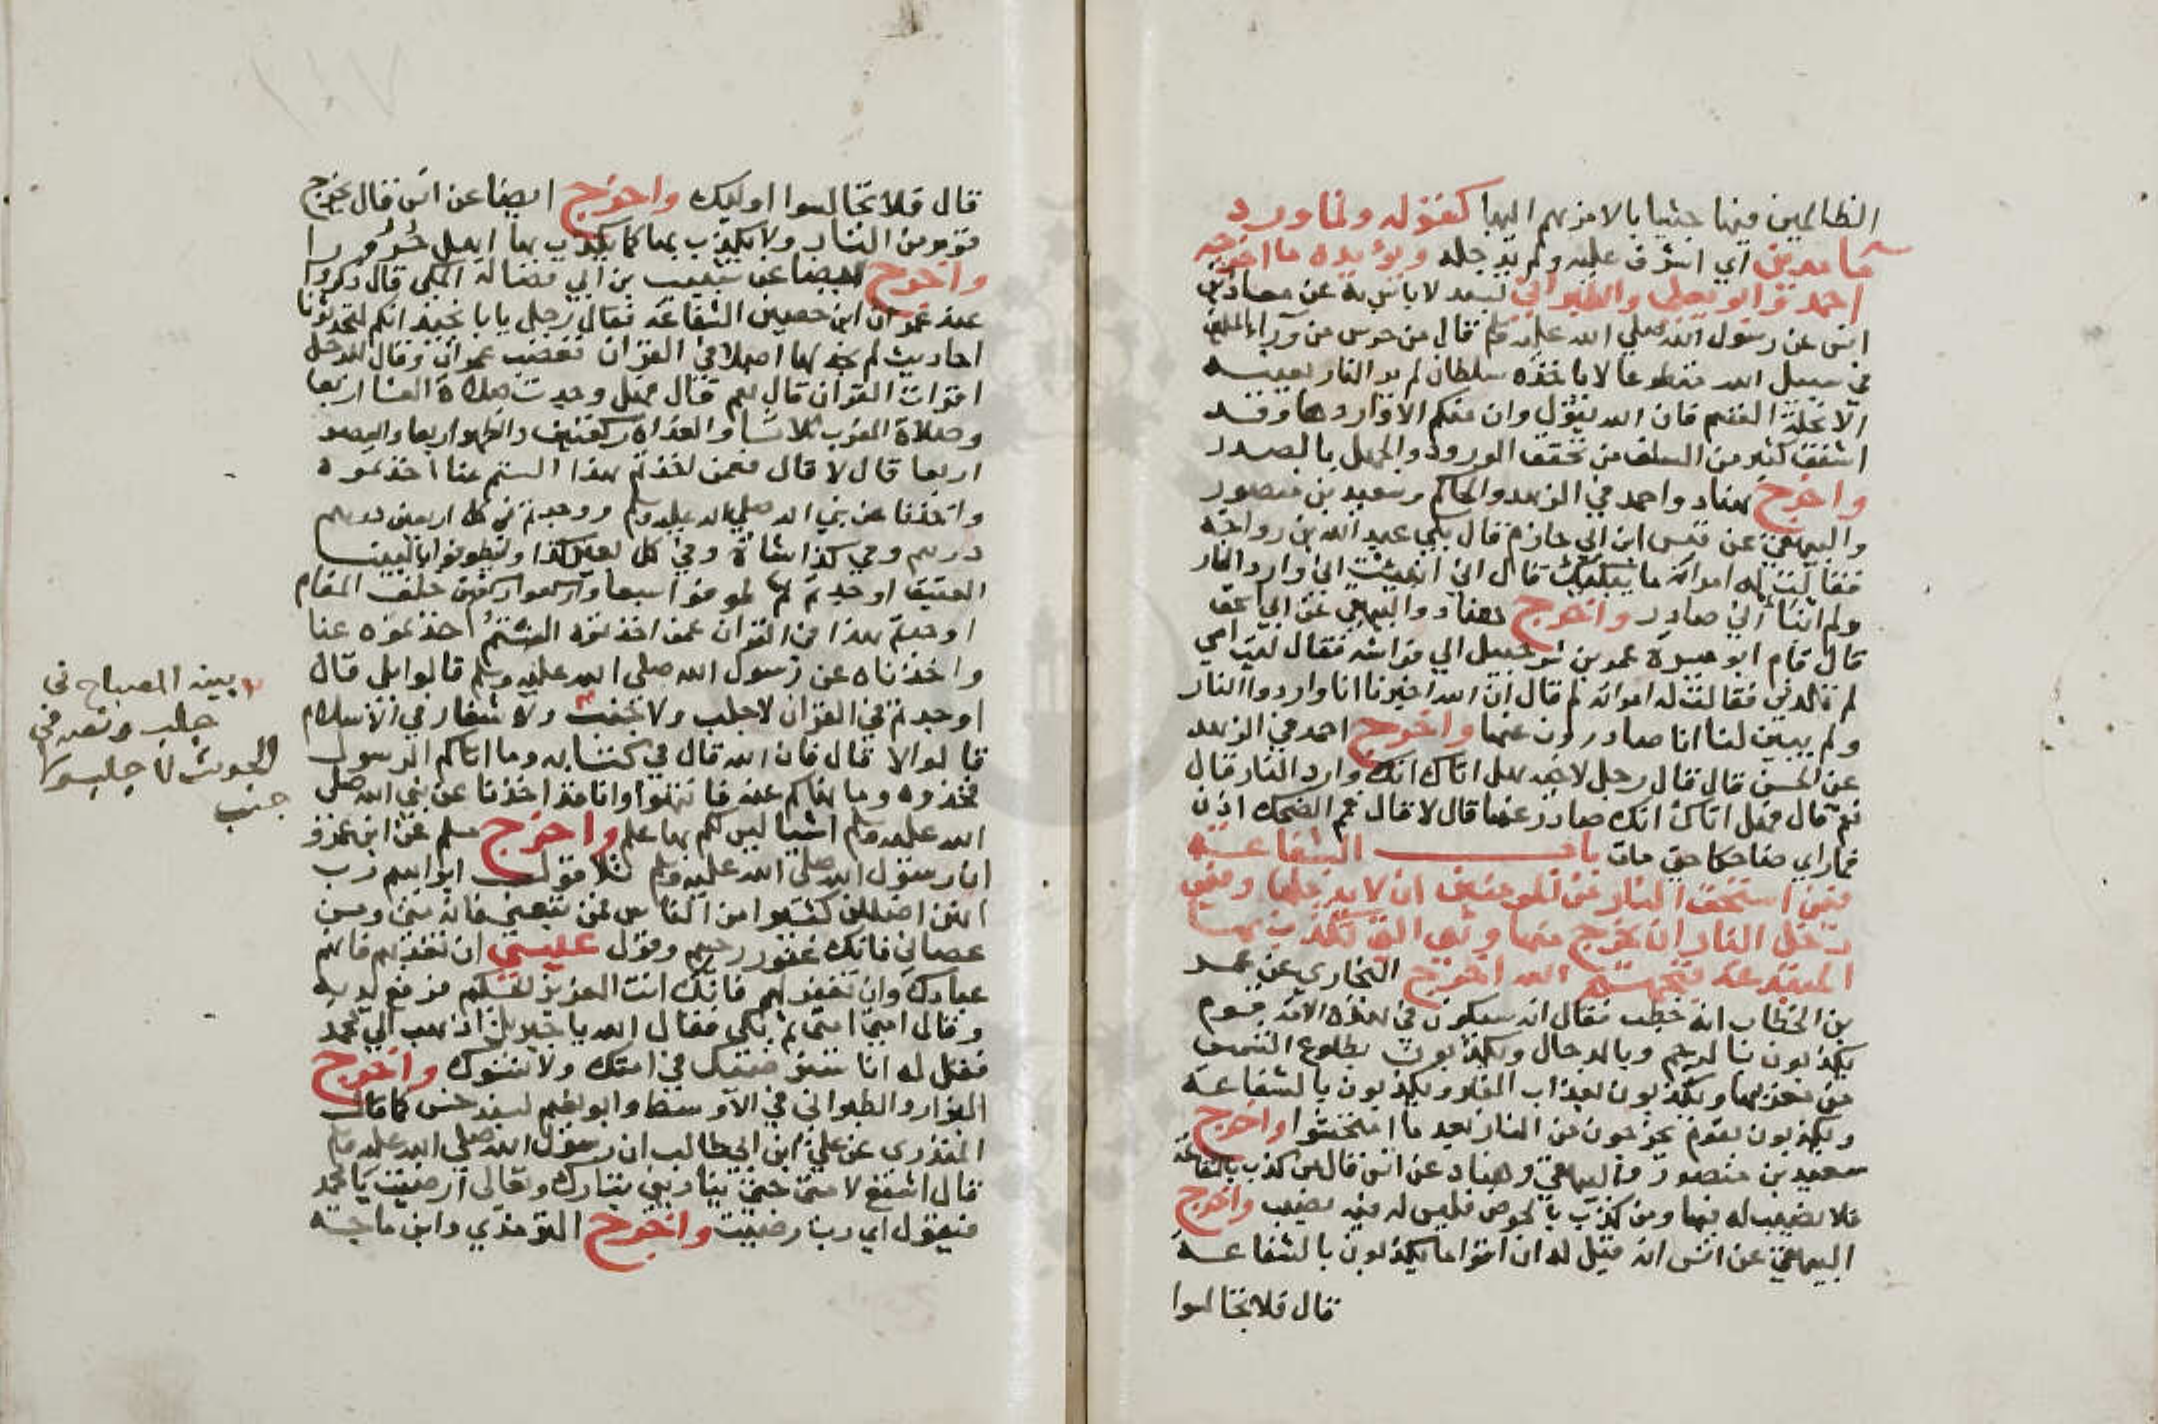 الظالمين فيها جثيا بالامر بهم اليها كقوله ولما ورد
ماء مدين اي اشرف عليه ولم يدخله ويؤيده ما اخرجه
احمد وابو يعلى والطبراني بسند لا باس به عن معاذ بن
انس عن رسول الله صلى الله عليه وسلم قال من حرس من وراء المسلمين
في سبيل الله متطوعا لا ياخذه سلطان لم ير النار بعينيه
الا تحلة القسم فان الله يقول وان منكم الا واردها وقد
اشفق كثير من السلف من تحقق الورود والجهل بالصدر
واخرج هناد واحمد في الزهد والحاكم وسعيد بن منصور
والبيهقي عن قيس ابن ابي حازم قال بكى عبد الله بن رواحة
فقالت له امراته ما يبكيك قال اني انبئت اني وارد النار
ولم انبا اني صادر واخرج هناد والبيهقي عن ابي اسحق
قال قام ابو ميسرة عمرو بن شرحبيل الى فراشه فقال ليت امي
لم تلدني فقالت له امراته لم قال ان الله اخبرنا انا واردوا النار
ولم يبين لنا انا صادرون عنها واخرج احمد في الزهد
عن الحسن قال قال رجل لاخيه هل اتاك انك وارد النار قال
نعم قال فهل اتاك انك صادر عنها قال لا قال ففيم الضحك اذن
فما راي ضاحكا حتى مات باب الشفاعة
فيمن استحق النار من المومنين ان لا يدخلها وفيمن
دخل النار ان يخرج منها وهي التي تكذب بها
المبتدعة قبحهم الله اخرج البخاري عن عمر
بن الخطاب انه خطب فقال انه سيكون في هذه الامة قوم
يكذبون بالرجم وبالدجال ويكذبون بطلوع الشمس
من مغربها ويكذبون بعذاب القبر ويكذبون بالشفاعة
ويكذبون بقوم يخرجون من النار بعد ما امتحشوا واخرج
سعيد بن منصور والبيهقي وهناد عن انس قال من كذب بالشفاعة
فلا نصيب له فيها ومن كذب بالحوض فليس له فيه نصيب واخرج
البيهقي عن انس انه قيل له ان اقواما يكذبون بالشفاعة
قال فلا تجالسوا
قال فلا تجالسوا اوليك واخرج ايضا عن انس قال يخرج
قوم من النار ولا يكذب بها كما يكذب بها اهل حرورا
واخرج ايضا عن شبيب بن ابي فضالة المكي قال ذكروا
عند عمران ابن حصين الشفاعة فقال رجل يا با نجيد انكم لتحدثونا
احاديث لم نجد لها اصلا في القران فغضب عمران وقال للرجل
اقرات القران قال نعم قال فهل وجدت صلاة العشا اربعا
وصلاة المغرب ثلاثا والغداة ركعتين والظهر اربعا والعصر
اربعا قال لا قال فعمن اخذتم هذا الستم عنا اخذتموه
واخذنا عن نبي الله صلى الله عليه وسلم ووجدتم في كل اربعين درهم
درهم وفي كل كذا شاة وفي كل بعير كذا وليطوفوا بالبيت
العتيق اوجدتم طوفوا سبعا واركعوا ركعتين خلف المقام
اوجدتم هذا في القران عمن اخذتموه الستم اخذتموه عنا
واخذناه عن رسول الله صلى الله عليه وسلم قالوا بلى قال
اوجدتم في القران لا جلب ولا جنب ولا شغار في الاسلام
قالوا لا قال فان الله قال في كتابه وما اتاكم الرسول
فخذوه وما نهاكم عنه فانتهوا وانا قد اخذنا عن نبي الله صلى
الله عليه وسلم اشيا ليس لكم بها علم واخرج مسلم عن ابن عمرو
ان رسول الله صلى الله عليه وسلم تلا قول ابراهيم رب
انهن اضللن كثيرا من الناس فمن تبعني فانه مني ومن
عصاني فانك غفور رحيم وقول عيسى ان تعذبهم فانهم
عبادك وان تغفر لهم فانك انت العزيز الحكيم فرفع يديه
وقال امتي امتي ثم بكى فقال الله يا جبريل اذهب الى محمد
فقل له انا سنرضيك في امتك ولا نسوك واخرج
البزار والطبراني في الاوسط وابو نعيم بسند حسن كما قال
المنذري عن علي ابن ابي طالب ان رسول الله صلى الله عليه وسلم
قال اشفع لامتي حتى ينادي ربي تبارك وتعالى ارضيت يا محمد
فيقول اي رب رضيت واخرج الترمذي وابن ماجة
بينه المصباح في
جلب ونصه في
الحديث لا جلب ولا
جنب